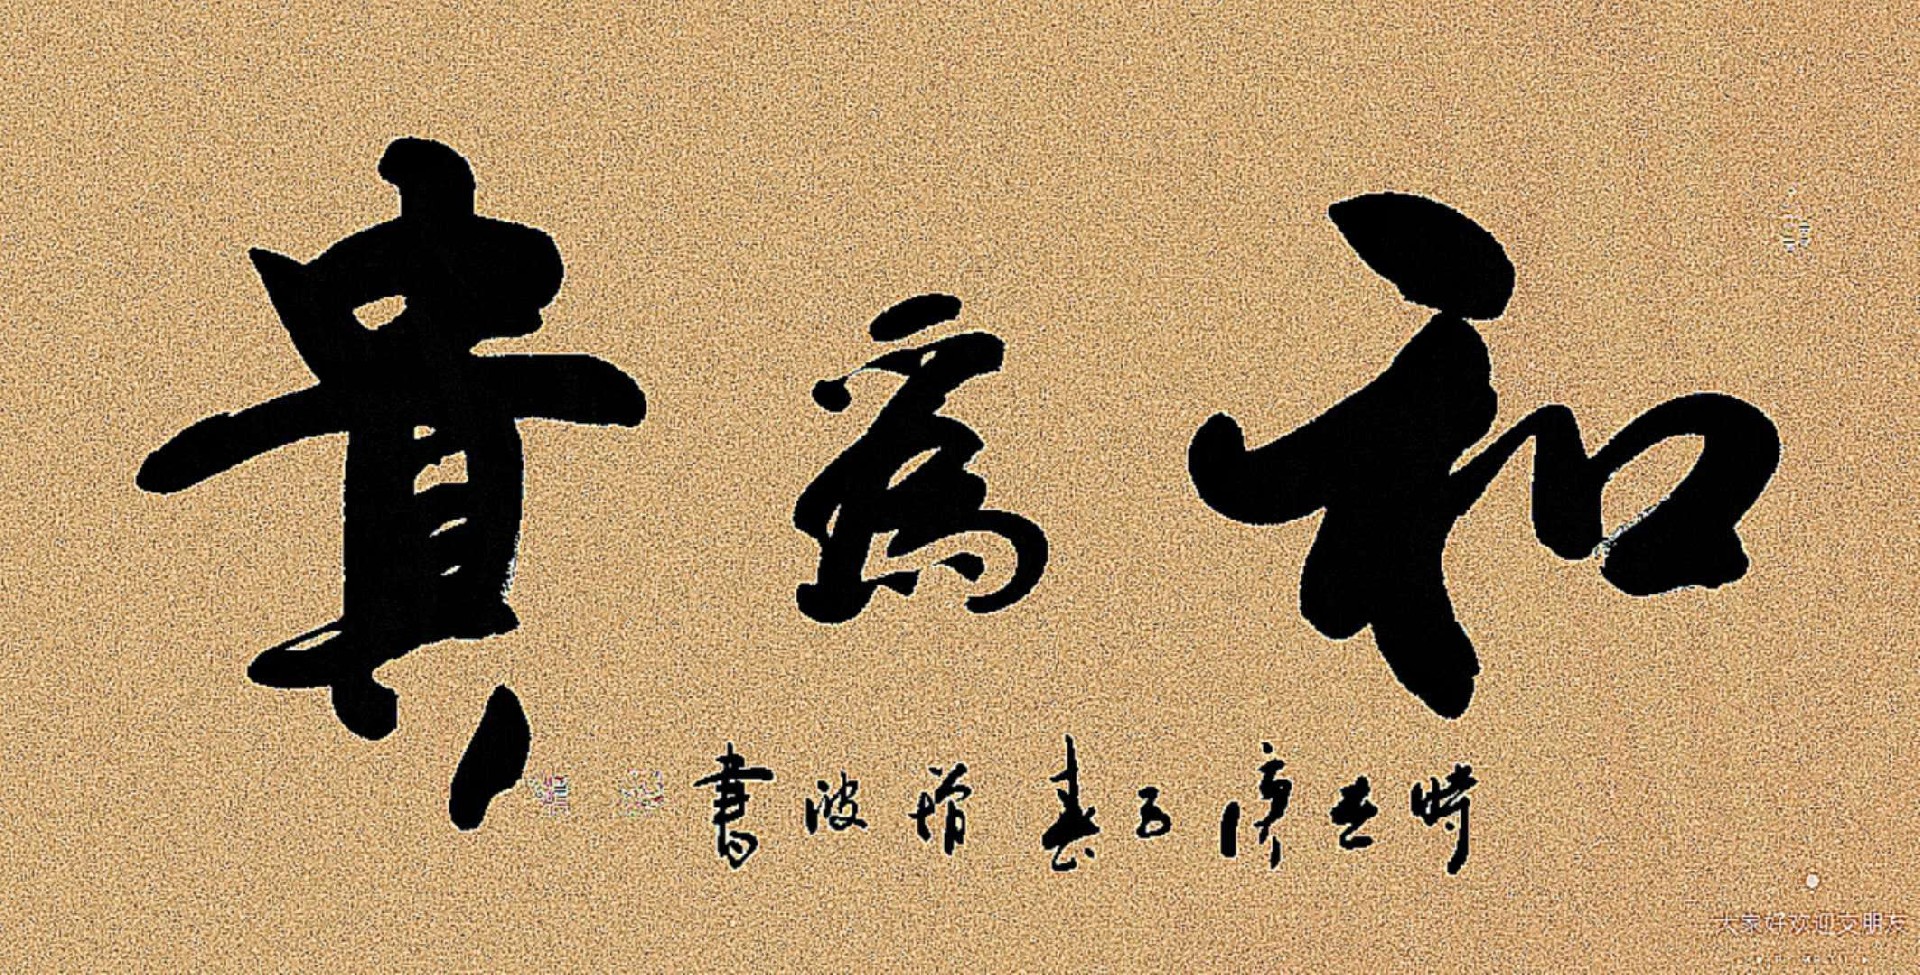 和為貴
時在庚子春增波書
大家好欢迎交朋友